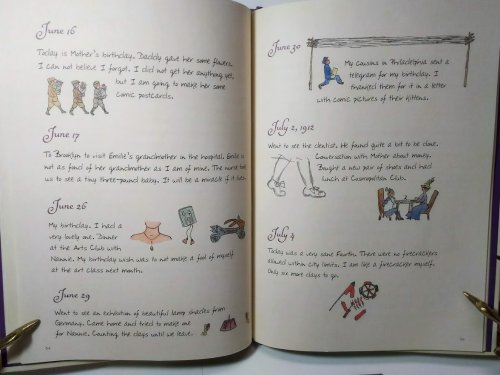 June 16
Today is Mother's birthday. Daddy gave her some flowers.
I can not believe I forgot. I did not get her anything yet,
but I am going to make her some
comic postcards.
June 17
To Brooklyn to visit Emilie's grandmother in the hospital. Emilie is
not as fond of her grandmother as I am of mine. The nurse took
us to see a tiny three-pound baby. It will be a miracle if it lives.
June 26
My birthday. I had a
very lovely one. Dinner
at the Arts Club with
Nannie. My birthday wish was to not make a fool of myself
at the art class next month.
June 29
Went to see an exhibition of beautiful lamp shades from
Germany. Came home and tried to make one
for Nannie. Counting the days until we leave.
June 30
My cousins in Philadelphia sent a
telegram for my birthday. I
thanked them for it in a letter
with comic pictures of their kittens.
July 2, 1912
Went to see the dentist. He found quite a bit to be done.
Conversation with Mother about money.
Bought a new pair of shoes and had
lunch at Cosmopolitan Club.
July 4
Today was a very sane Fourth. There were no firecrackers
allowed within city limits. I am like a firecracker myself.
Only six more days to go.